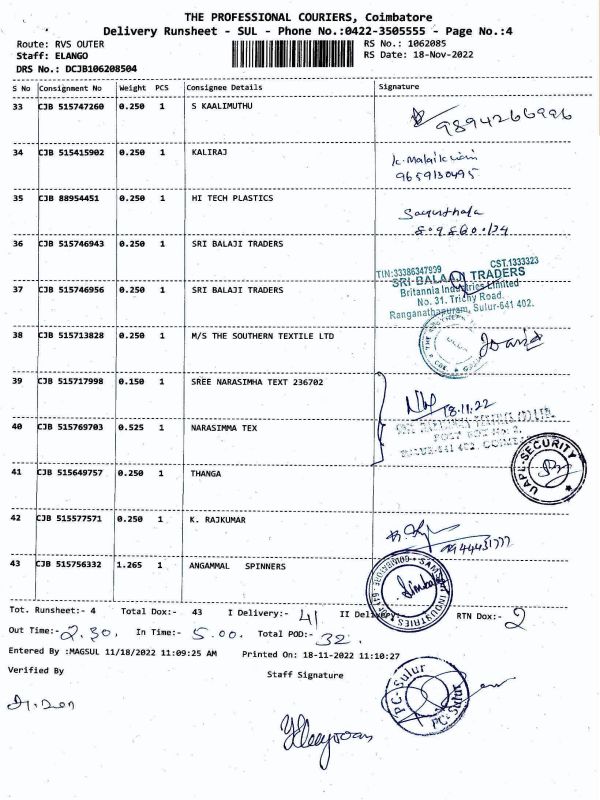 THE PROFESSIONAL COURIERS, Coimbatore
Delivery Runsheet - SUL - Phone No.:0422-3505555 - Page No.:4
Route: RVS OUTER RS No.: 1062085
Staff: ELANGO RS Date: 18-Nov-2022
DRS No.: DCJB106208504
S No Consignment No Weight PCS Consignee Details Signature
33 CJB 515747260 0.250 1 S KAALIMUTHU
9894266996
34 CJB 515415902 0.250 1 KALIRAJ
9659130495
35 CJB 88954451 0.250 1 HI TECH PLASTICS
36 CJB 515746943 0.250 1 SRI BALAJI TRADERS
TIN:33386347999 CST.1333323
SRI BALAJI TRADERS
37 CJB 515746956 0.250 1 SRI BALAJI TRADERS
Britannia Industries Limited
No. 31. Trichy Road.
Ranganathapuram, Sulur-641 402.
38 CJB 515713828 0.250 1 M/S THE SOUTHERN TEXTILE LTD
39 CJB 515717998 0.150 1 SREE NARASIMHA TEXT 236702
18.11.22
40 CJB 515769703 0.525 1 NARASIMMA TEX
POST BOX No: 2.
41 CJB 515649757 0.250 1 THANGA
UAPL-SECURITY
42 CJB 515577571 0.250 1 K. RAJKUMAR
43 CJB 515756332 1.265 1 ANGAMMAL SPINNERS
Tot. Runsheet:- 4 Total Dox:- 43 I Delivery:- 41 II Delivery:- RTN Dox:- 2
Out Time:- 2.30. In Time:- 5.00. Total POD:- 32.
Entered By :MAGSUL 11/18/2022 11:09:25 AM Printed On: 18-11-2022 11:10:27
Verified By Staff Signature
PC-Sulur
PC-Sulur